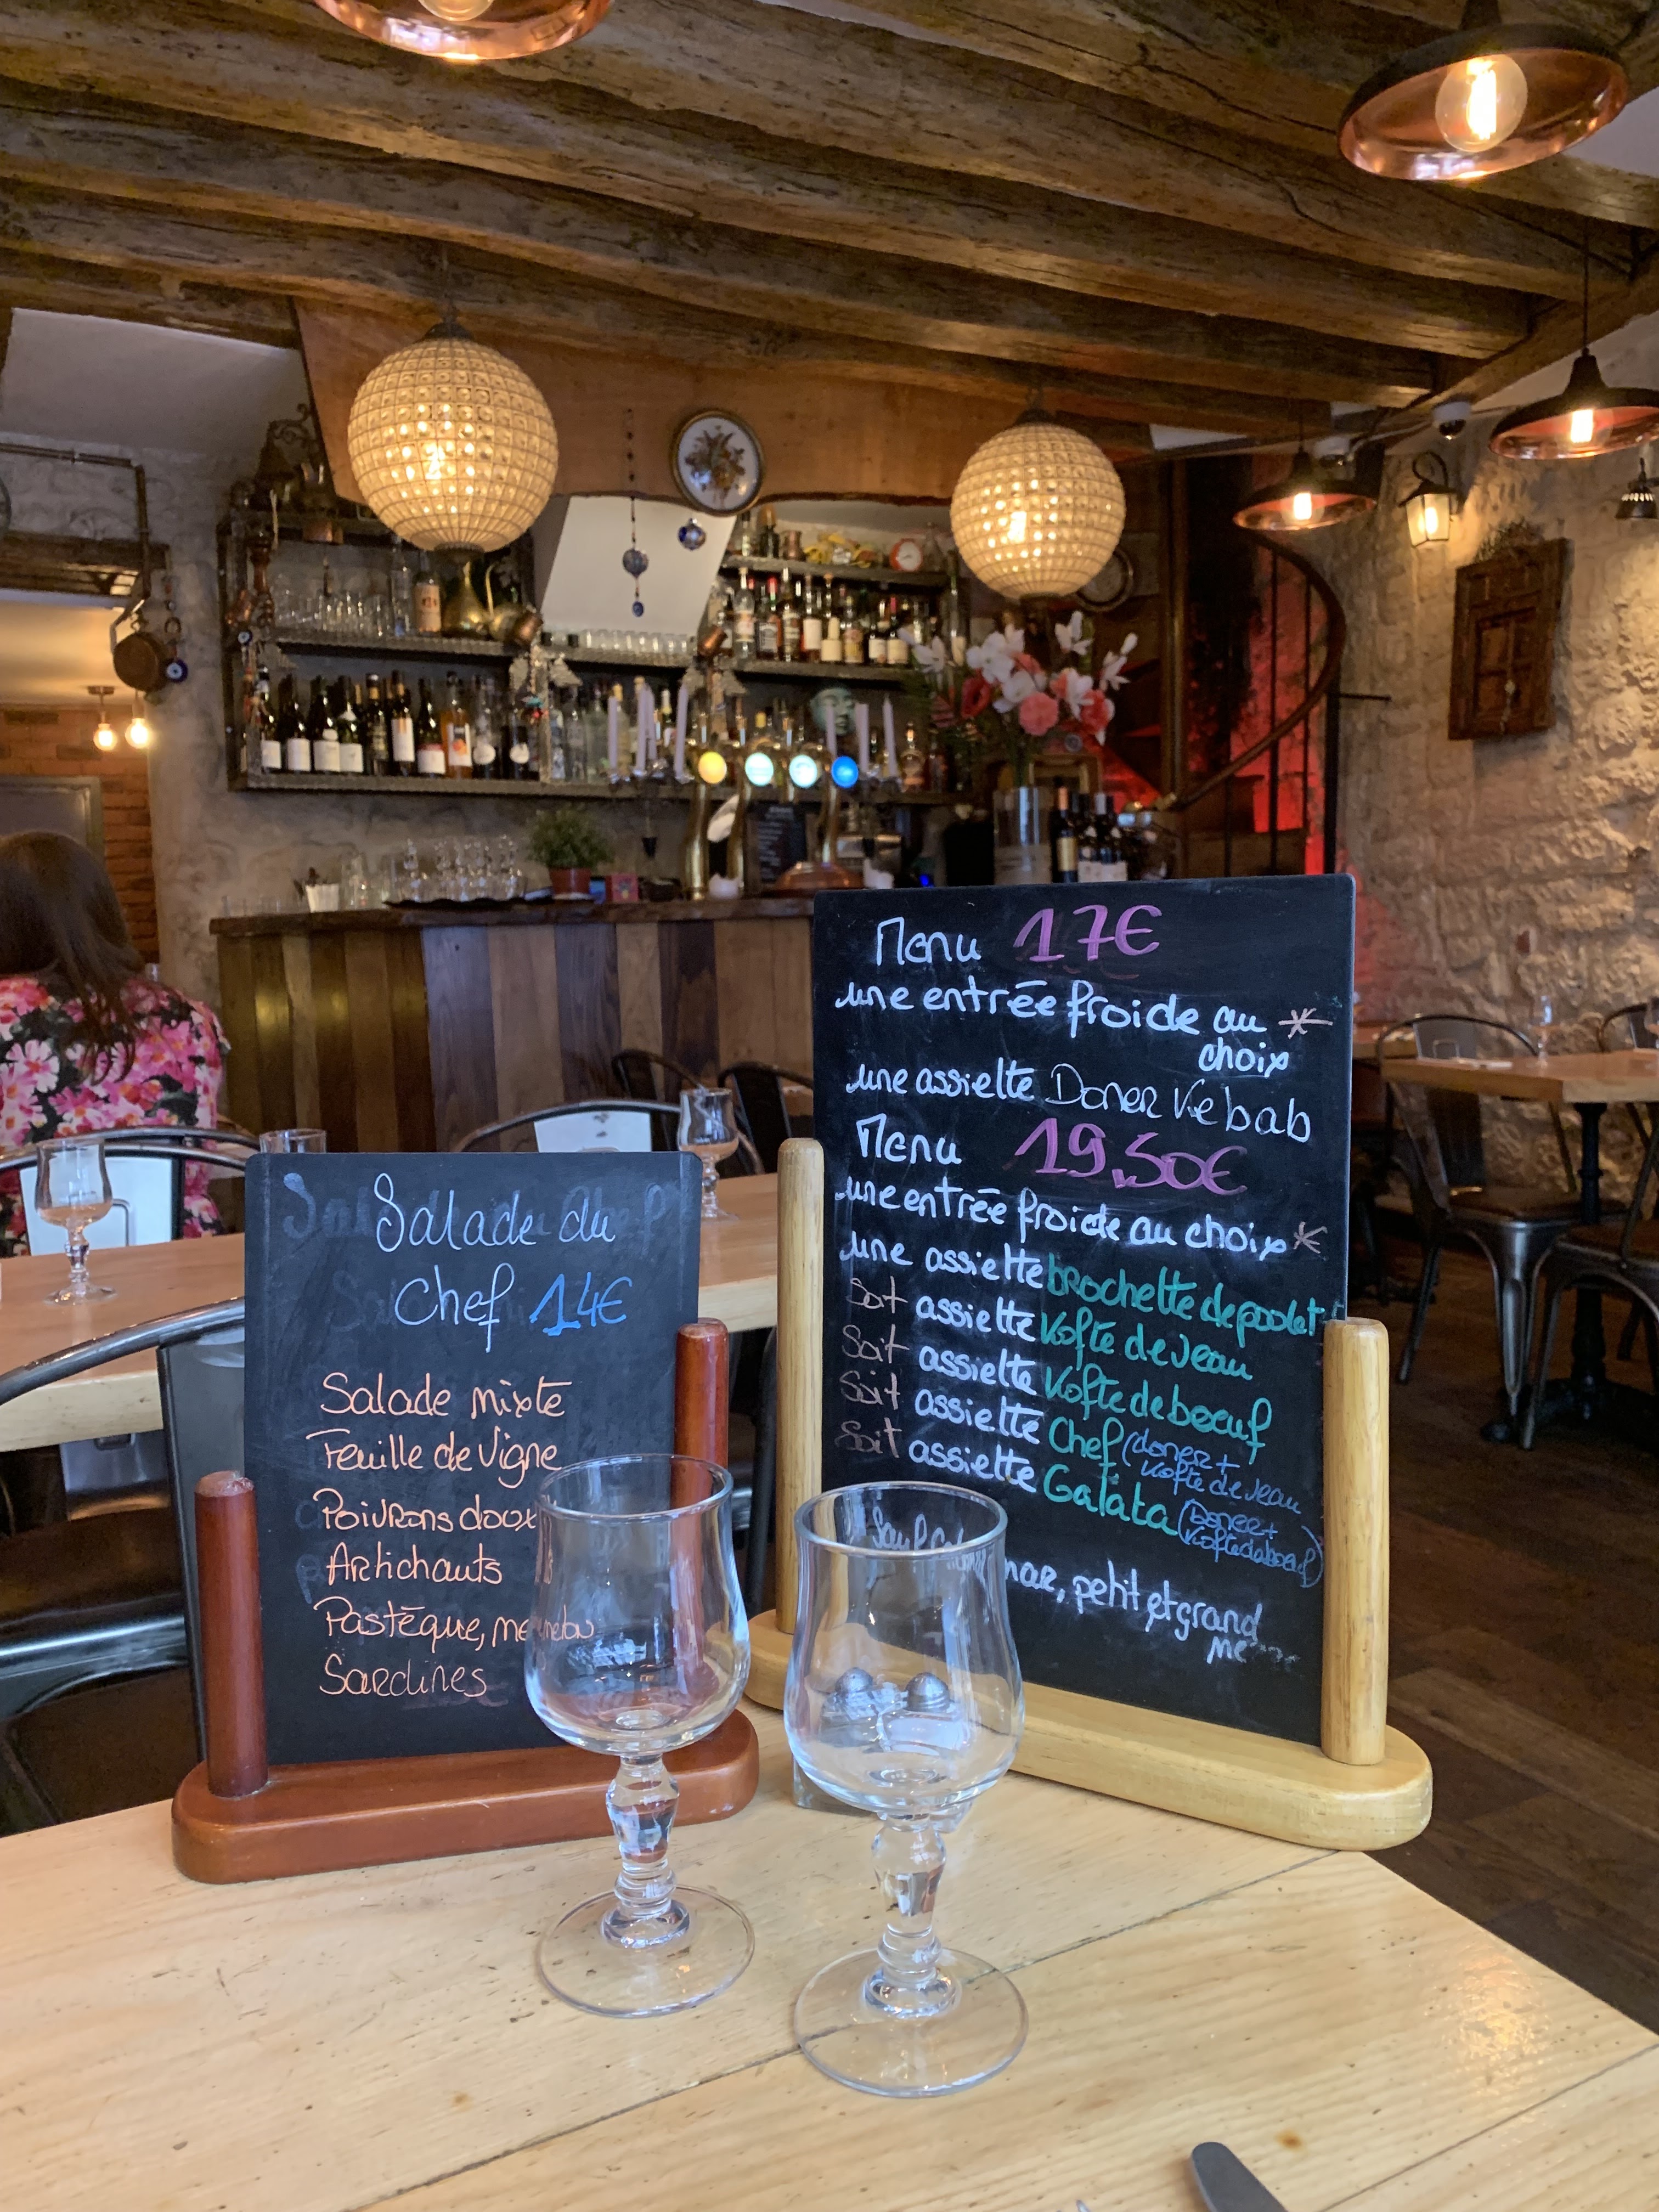 Salade du
Chef 14€
Salade mixte
Feuille de Vigne
Poivrons doux
Artichauts
Pastèque, melon
Sardines
Menu 17€
une entrée froide au *
choix
une assiette Doner Kebab
Menu 19.50€
une entrée froide au choix *
une assiette brochette de poulet
Soit assiette Kofte de veau
Soit assiette Kofte de boeuf
Soit assiette Chef (doner +
Kofte de veau
Soit assiette Galata (Doner +
Kofte de boeuf)
Sauf
petit et grand